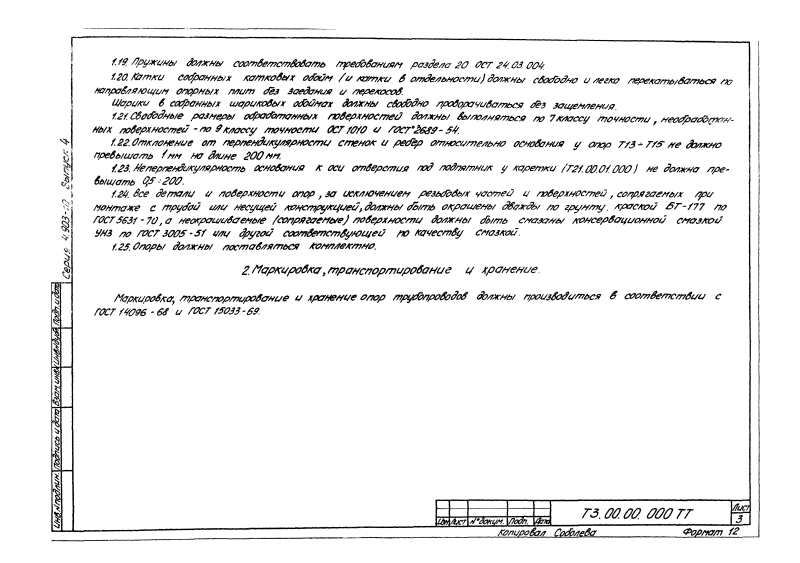 1.19. Пружины должны соответствовать требованиям раздела 20 ОСТ 24.03.004.
1.20. Катки собранных катковых обойм (и катки в отдельности) должны свободно и легко перекатываться по
направляющим опорных плит без заедания и перекосов.
Шарики в собранных шариковых обоймах должны свободно проворачиваться без защемления.
1.21. Свободные размеры обработанных поверхностей должны выполняться по 7 классу точности, необработан-
ных поверхностей - по 9 классу точности ОСТ 1010 и ГОСТ 2689-54.
1.22. Отклонение от перпендикулярности стенок и ребер относительно основания у опор Т13÷Т15 не должно
превышать 1 мм на длине 200 мм.
1.23. Неперпендикулярность основания к оси отверстия под подпятник у каретки (Т21.00.01.000) не должна пре-
вышать 0,5:200.
1.24. Все детали и поверхности опор, за исключением резьбовых частей и поверхностей, сопрягаемых при
монтаже с трубой или несущей конструкцией, должны быть окрашены дважды по грунту. краской БТ-177 по
ГОСТ 5631-70, а неокрашиваемые (сопрягаемые) поверхности должны быть смазаны консервационной смазкой
УНЗ по ГОСТ 3005-51 или другой соответствующей по качеству смазкой.
1.25. Опоры должны поставляться комплектно.
2. Маркировка, транспортирование и хранение.
Маркировка, транспортирование и хранение опор трубопроводов должны производиться в соответствии с
ГОСТ 14096-68 и ГОСТ 15033-69.
Серия 4.903-10 Выпуск 4
Инв.№подлин. Подпись и дата Взам.инв.№ Инв.№дубл. Подп. и дата
Изм Лист №докум. Подп. Дата
Т3.00.00.000 ТТ
Лист
3
Копировал Соболева Формат 12